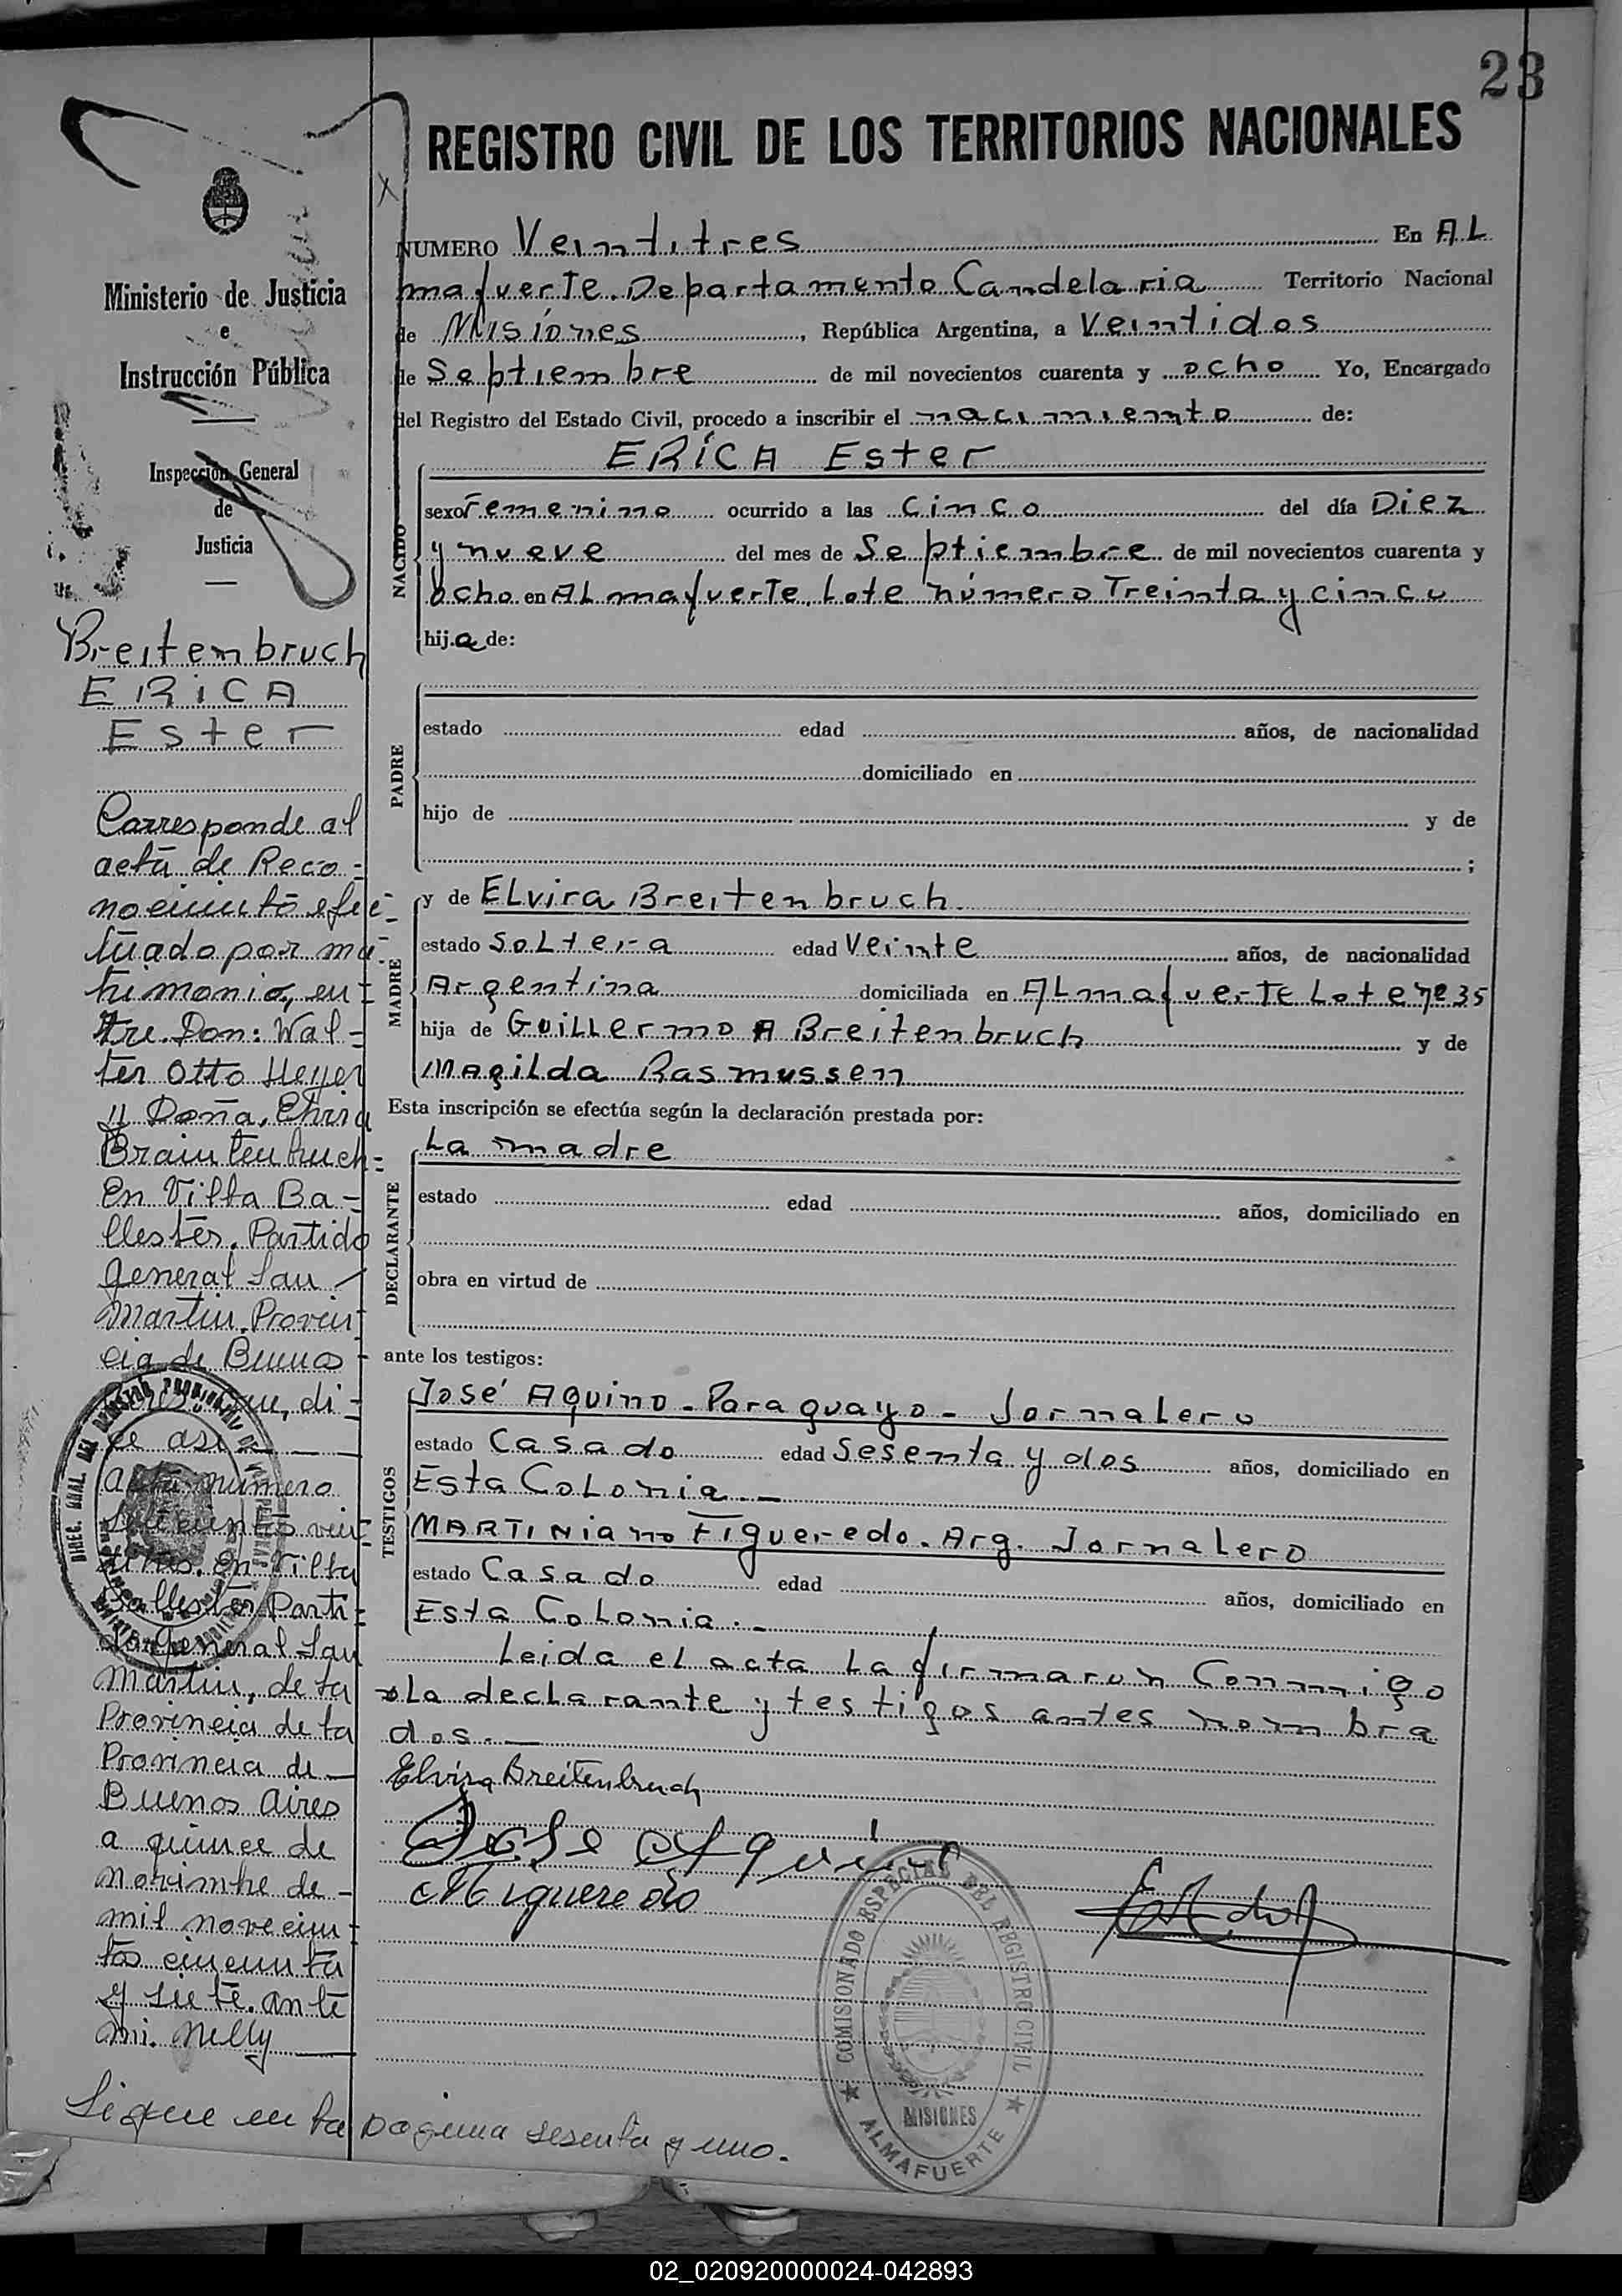 23
REGISTRO CIVIL DE LOS TERRITORIOS NACIONALES
Ministerio de Justicia
e
Instrucción Pública
Inspección General
de
Justicia
Breitenbruch
ERICA
Ester
Corresponde al
acta de Reco=
nocimiento efec-
tuado por ma-
trimonio, en=
tre Don: Wal=
ter Otto Heyer
y Doña, Elvira
Braintenbruch=
En Villa Ba-
llester. Partido
General San
Martin. Provin=
cia de Buenos
Aires que, di=
ce asi
Acta número
Villa
Ballester Parti=
do General San
Martin, de la
Provincia de la
Provincia de
Buenos Aires
a quince de
Noviembre de -
mil novecien=
tos cincuenta
y siete. ante
mi. Nelly
Sigue en la pagina sesenta y uno.
NUMERO Veintitres En AL
mafuerte. Departamento Candelaria Territorio Nacional
de Misiones, República Argentina, a Veintidos
de Septiembre de mil novecientos cuarenta y ocho Yo, Encargado
del Registro del Estado Civil, procedo a inscribir el nacimiento de:
ERICA Ester
NACIDO
sexo Femenino ocurrido a las Cinco del día Diez
y nueve del mes de Septiembre de mil novecientos cuarenta y
ocho en ALmafuerte. Lote número Treinta y cinco
hija de:
PADRE
estado edad años, de nacionalidad
domiciliado en
hijo de y de
;
MADRE
y de ELvira Breitenbruch.
estado SoLtera edad Veinte años, de nacionalidad
Argentina domiciliada en ALmafuerte Lote nº 35
hija de GuiLLermo A Breitenbruch y de
Magilda Rasmussen
Esta inscripción se efectúa según la declaración prestada por:
DECLARANTE
La madre
estado edad años, domiciliado en
obra en virtud de
ante los testigos:
TESTIGOS
José Aquino - Paraguayo - JornaLero
estado Casado edad Sesenta y dos años, domiciliado en
Esta CoLonia.-
MARTINiano Figueredo. Arg. JornaLero
estado Casado edad años, domiciliado en
Esta CoLonia.-
Leida eL acta La firmaron Conmigo
La decLarante y testigos antes nombra
dos.-
Elvira Breitenbruch
Jose Aquino
M Figueredo
COMISIONADO ESPECIAL DEL REGISTRO CIVIL
MISIONES
ALMAFUERTE
02_020920000024-042893